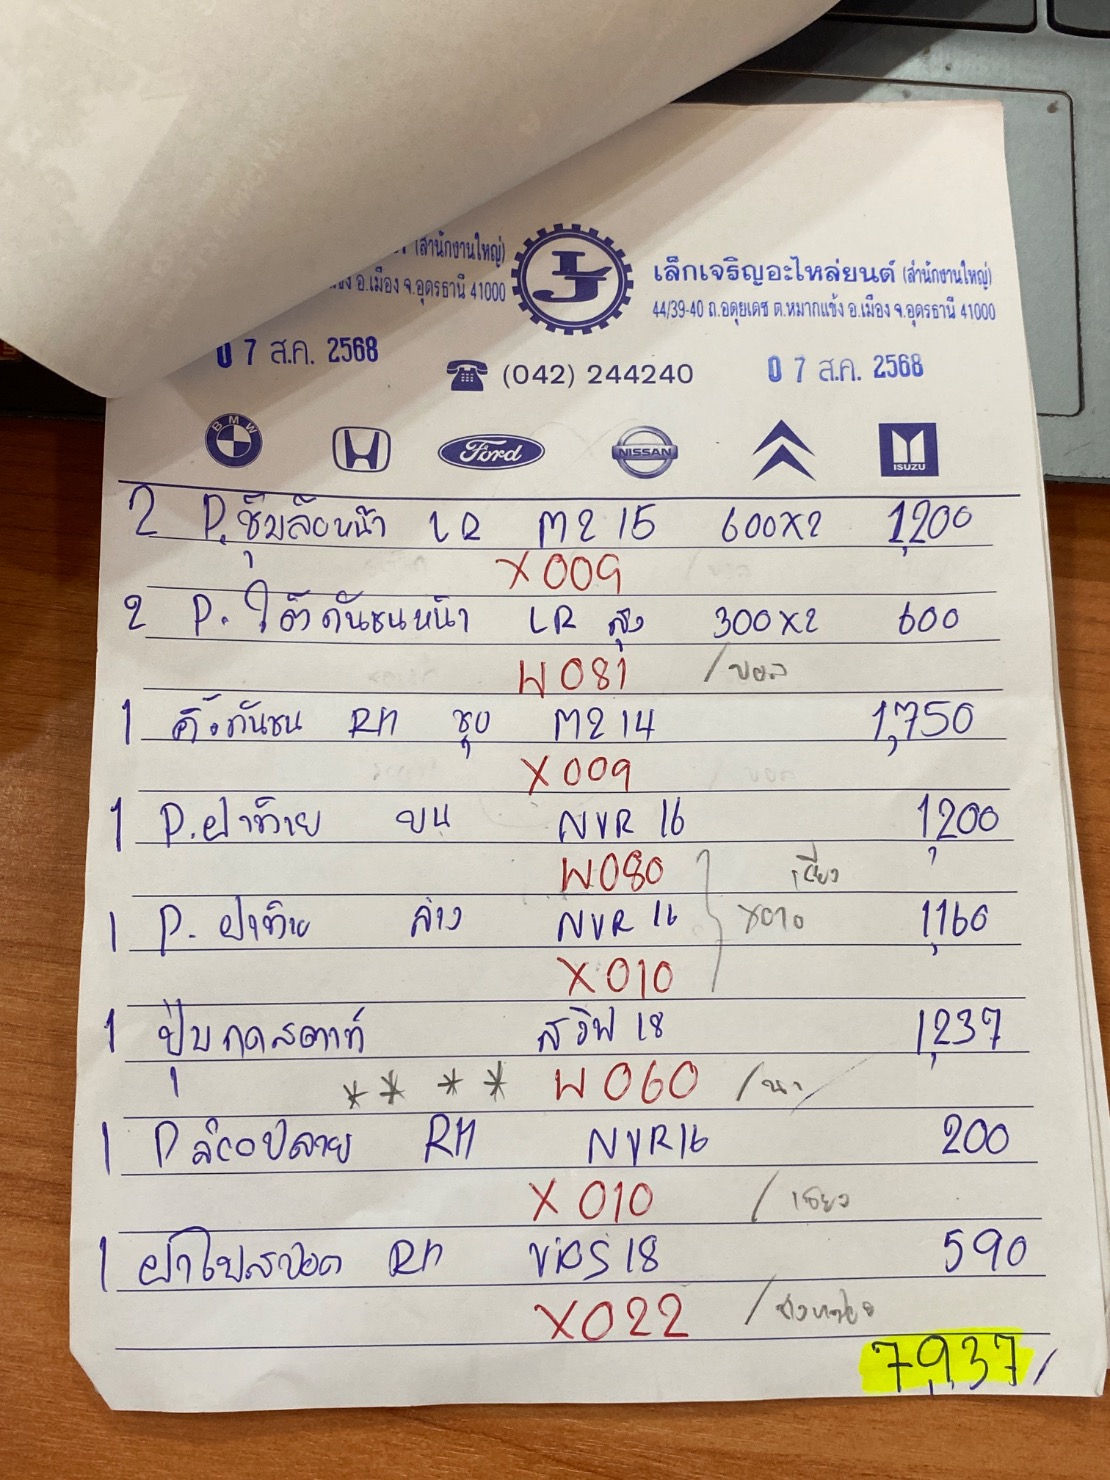 (สำนักงานใหญ่)
อ.เมือง จ.อุดรธานี 41000
เล็กเจริญอะไหล่ยนต์ (สำนักงานใหญ่)
44/39-40 ถ.อดุยเดช ต.หมากแข้ง อ.เมือง จ.อุดรธานี 41000
0 7 ส.ค. 2568
(042) 244240
0 7 ส.ค. 2568
BMW Ford NISSAN ISUZU
2 P.ซุ้มล้อหน้า LR M2 15 600x2 1,200
X009
2 P. ใต้กันชนหน้า LR สูง 300x2 600
W081 /บอล
1 คิ้วกันชน RH ชุบ M2 14 1,750
X009
1 P.ฝาท้าย บน NVR 16 1,200
W080
1 P.ฝาท้าย ล่าง NVR 16 X010 1,160
X010
1 ปุ่มกดสตาท์ สวิฟ 18 1,237
** ** W060 /นา
1 P RH NVR16 200
X010
1 ฝาไฟสปอต RH ViOS 18 590
X022
7,937